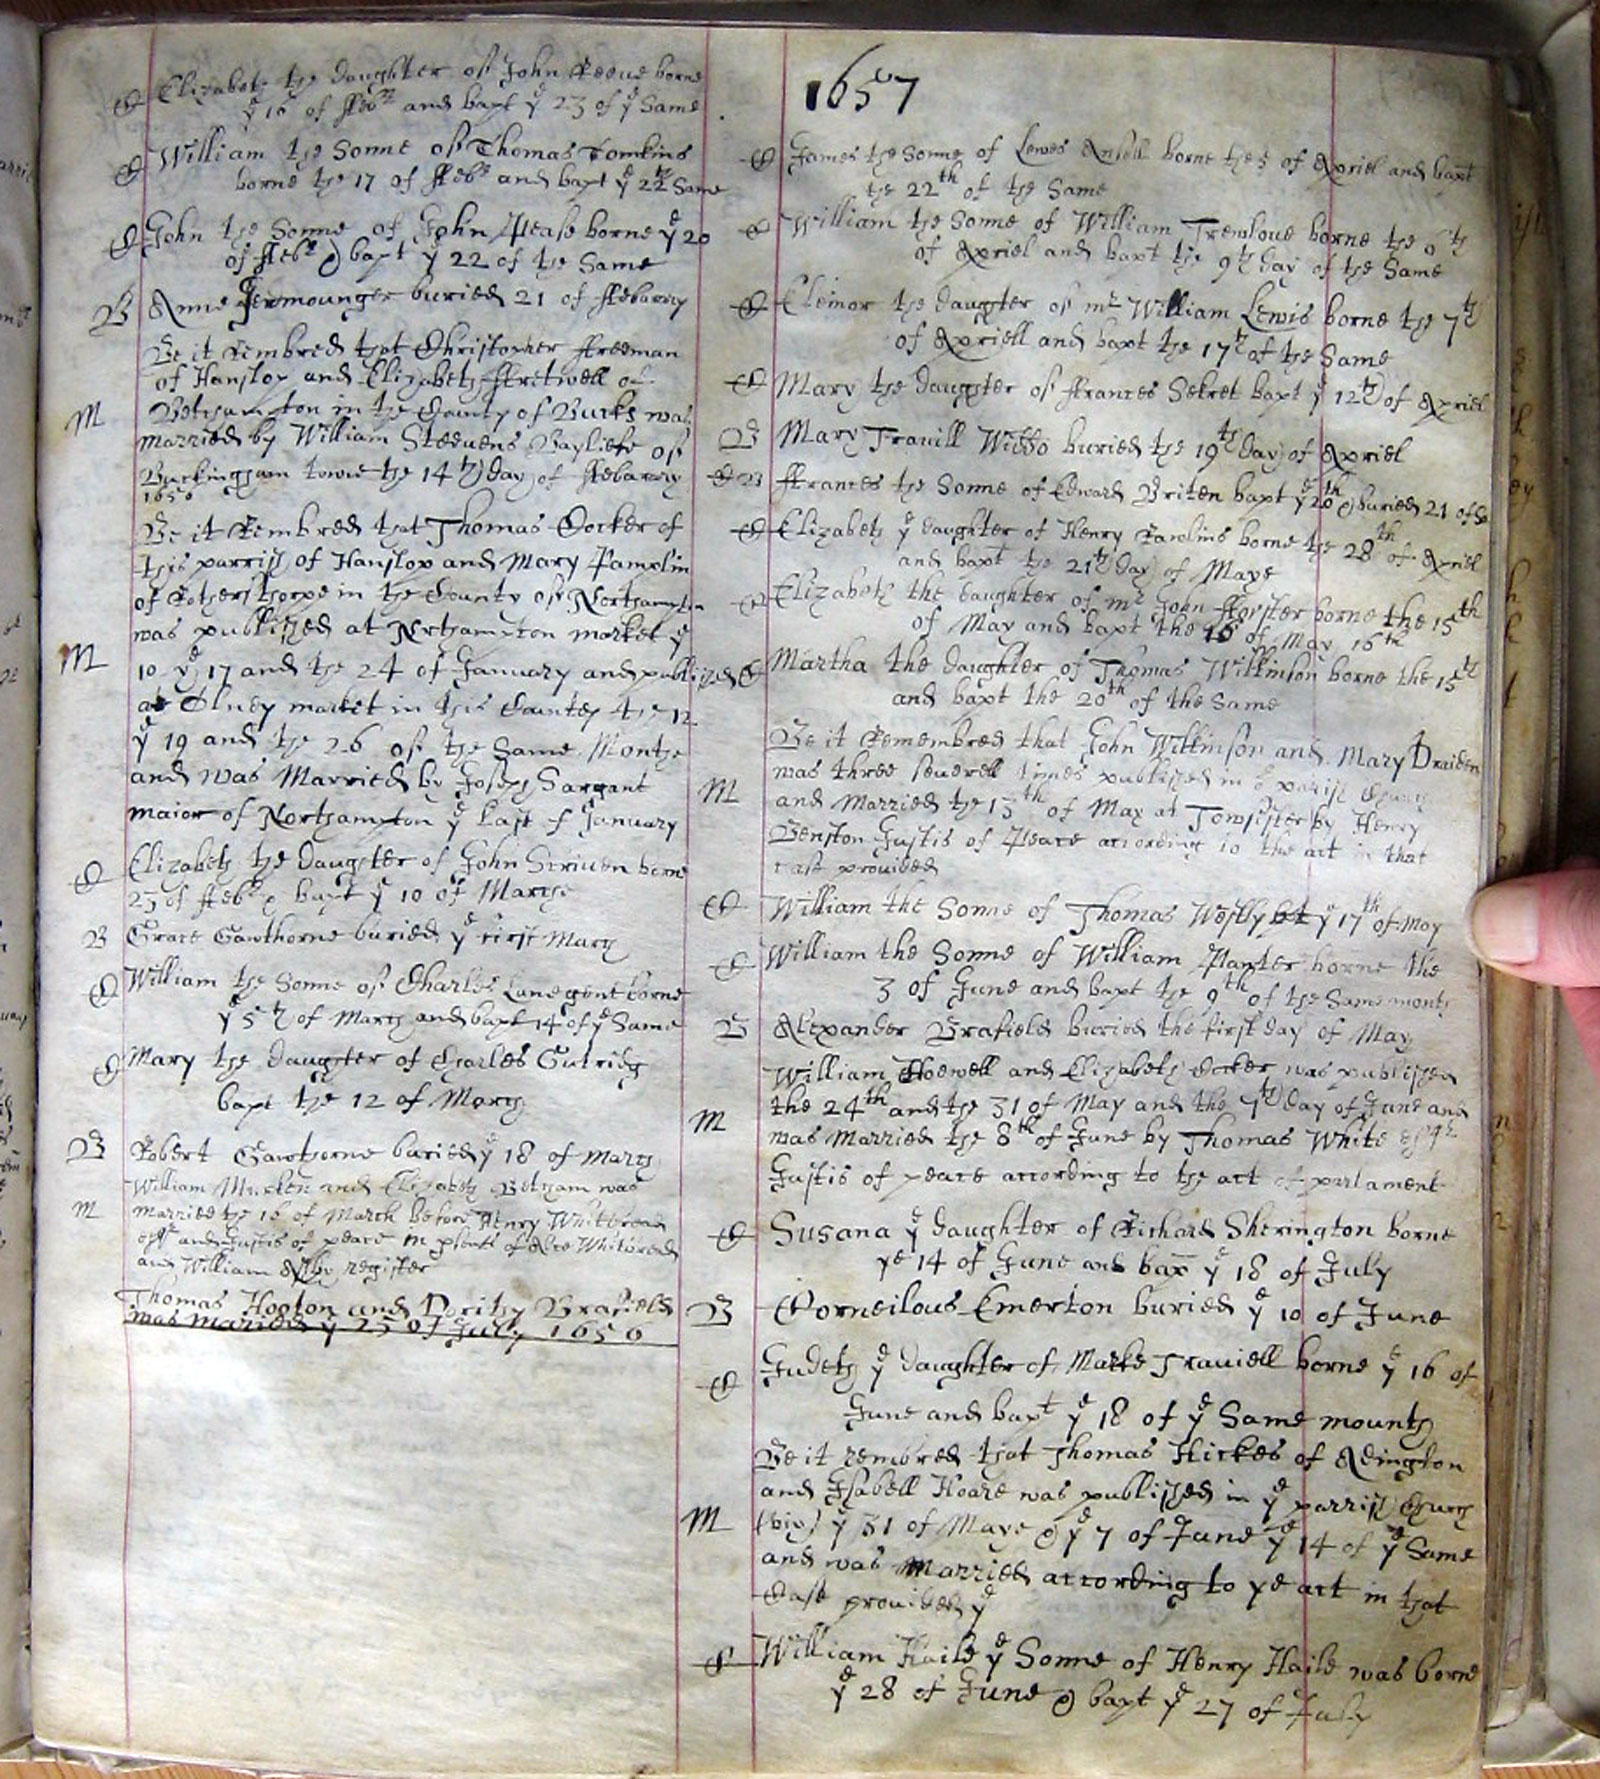 C Elizabeth the daughter of John Reeve borne
ye 16 of ffebr and bapt ye 23 of ye Same
C William the Sonne of Thomas Tomkins
borne the 17 of ffebr and bapt ye 22th Same
C John the Sonne of John Pease borne ye 20
of ffebr & bapt ye 22 of the Same
B Anne buried 21 of ffebarry
Be it Rembred that Christopher ffreeman
of Hanslop and Elizabeth ffretwell of
M in the County of Bucks was
married by William Steevens Bayliefe of
Buckingham towne the 14th day of ffebarry
1656
Be it Rembred that Thomas Cocker of
this parrish of Hanslop and Mary Pamplin
of Rothersthorpe in the County of Northampton
was published at Northampton market ye
M 10 ye 17 and the 24 of January and published
at Olney market in this Countey the 12
ye 19 and the 26 of the Same Monthe
and was Married by Joseph Sargant
maior of Northampton ye Last of January
C Elizabeth the daughter of John Scriven borne
23 of ffebr & bapt ye 10 of Marche
B Grace Gawthorne buried ye first March
C William the Sonne of Charles Lane gent borne
ye 5th of March and bapt 14 of ye Same
C Mary the daughter of Charles Gutridg
bapt the 12 of March
B Robert Gawthorne buried ye 18 of March
William and Elizabeth was
M married the 16 of March before Henry Whitbread
esqr and Justis of peace in of Whitbread
and William register
Thomas Hooton and Dorithy Brafield
was maried ye 25 of July 1656
1657
C James the Sonne of Lewes Ansell borne the 5 of Apriel and bapt
the 22th of the Same
C William the Sonne of William Trewlove borne the 6th
of Apriel and bapt the 9th day of the Same
C Eleinor the daughter of mr William Lewis borne the 7th
of Apriell and bapt the 17th of the Same
C Mary the daughter of ffrances Sekret bapt ye 12th of Apriel
B Mary Travill Widdo buried the 19th day of Apriel
C B ffrances the Sonne of Edward Briten bapt ye 20th & buried 21 of
C Elizabeth ye daughter of Henry Rawlins borne the 28th of Apriel
and bapt the 21th day of Maye
C Elizabeth the daughter of mr John fforster borne the 15th
of May and bapt the 16 of May 16th
C Martha the daughter of Thomas Wilkinson borne the 15th
and bapt the 20th of the Same
Be it Remembred that John Wilkinson and Mary Draiden
was three severell times published in ye parish Church
M and Married the 13th of May at Towsister by Henry
Benston Justis of Peace according to the act in that
case provided
C William the Sonne of Thomas Westly bt ye 17th of May
C William the Sonne of William Panter borne the
3 of June and bapt the 9th of the Same month
B Alexander Brafield buried the first day of May
William Hoewell and Elizabeth Cocker was published
the 24th and the 31 of May and the 7th day of June and
M was Married the 8th of June by Thomas White Esqr
Justis of peace according to the act of parlament
C Susana ye daughter of Richard Sherington borne
ye 14 of June and bap ye 18 of July
B Corneilous Emerton buried ye 10 of June
C Judeth ye daughter of Marke Traviell borne ye 16 of
June and bapt ye 18 of ye Same mounth
Be it rembred that Thomas Hickes of Adington
and Isabell Hoare was published in ye parrish Church
M (viz) ye 31 of Maye & ye 7 of June ye 14 of ye Same
and was Married according to ye act in that
Case provided ye
C William Haile ye Sonne of Henry Haile was borne
ye 28 of June & bapt ye 27 of July